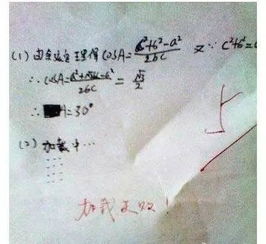 (1) 由余弦定理得 COSA=\frac{c²+b²-a²}{2bc} 又∵ c²+b²=
∴ cosA=\frac{a²+√3bc-a²}{2bc}=\frac{√3}{2}
∴ A=30°
(2) 加载中…
加载失败!